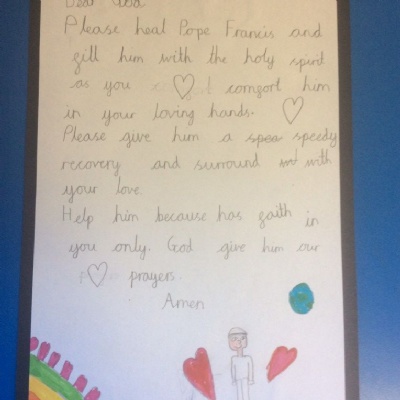 Dear God
Please heal Pope Francis and
fill him with the holy spirit
as you comfort him
in your loving hands.
Please give him a spea speedy
recovery and surround with
your love.
Help him because has faith in
you only. God give him our
prayers.
Amen